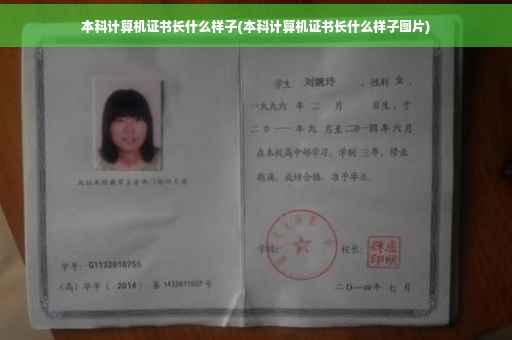 本科计算机证书长什么样子(本科计算机证书长什么样子图片)
学生 刘婉玲 ，性别 女 ，
一九九六 年 二 月 日生，于
二〇一一年九 月至二〇一四年六月
在本校高中部学习，学制 三年，修业
期满，成绩合格，准予毕业。
学号：G1132010755
(高) 毕字 ( 2014 ) 第 1432011027 号
学校：
校长：
二〇一四年 七 月